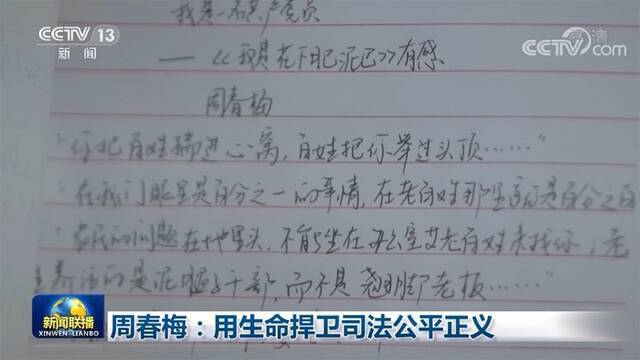 CCTV 13
新闻
高清
CCTV.com
我是一名共产党员
——《我是花下肥泥巴》有感
周春梅
“你把百姓揣进心窝，百姓把你举过头顶……”
“在我们眼里是百分之一的事情，在老百姓那里就是百分之百
农民的问题在地里头，不能坐在办公室等老百姓来找你；老
的是泥腿子干部，而不是翘脚老板……”
新闻联播
XINWEN LIANBO
周春梅：用生命捍卫司法公平正义